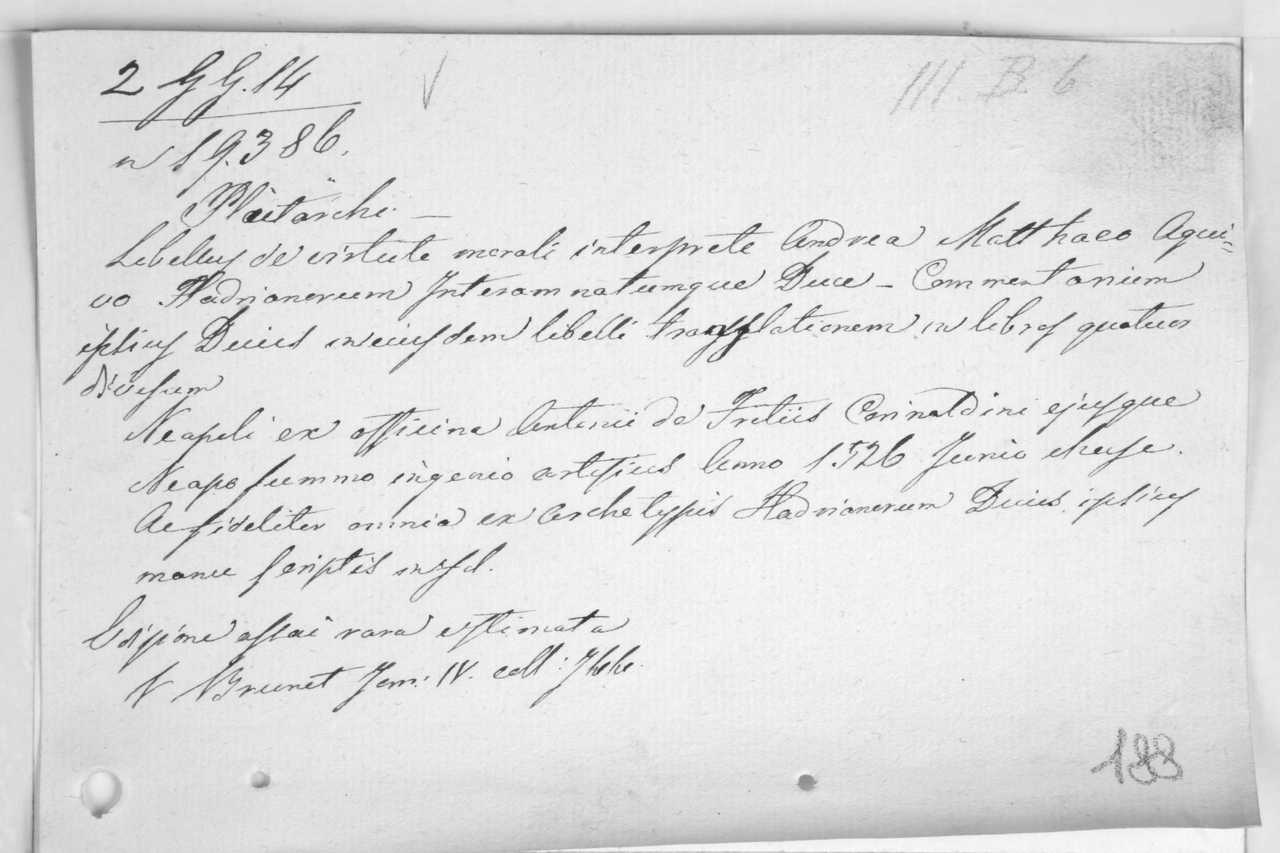 2 GG. 14
III. B. 6
n 19.386.
Plutarchi –
Libellus de virtute morali interprete Andrea Matthaeo Aqui=
vo Hadrianorum Interamnatumque Duce – Commentarium
ipsius Ducis in eiusdem libelli translationem in libros quatuor
divisum
Neapoli ex officina Antonii de Fritiis Corinaldini ejusque
Neapo summo ingenio artificis Anno 1526 Junio mense.
Ac fideliter omnia ex archetypis Hadrianorum Ducis ipsius
manu scriptis in fol.
Edizione assai rara e stimata
V Brunet Tom: IV. coll:
188